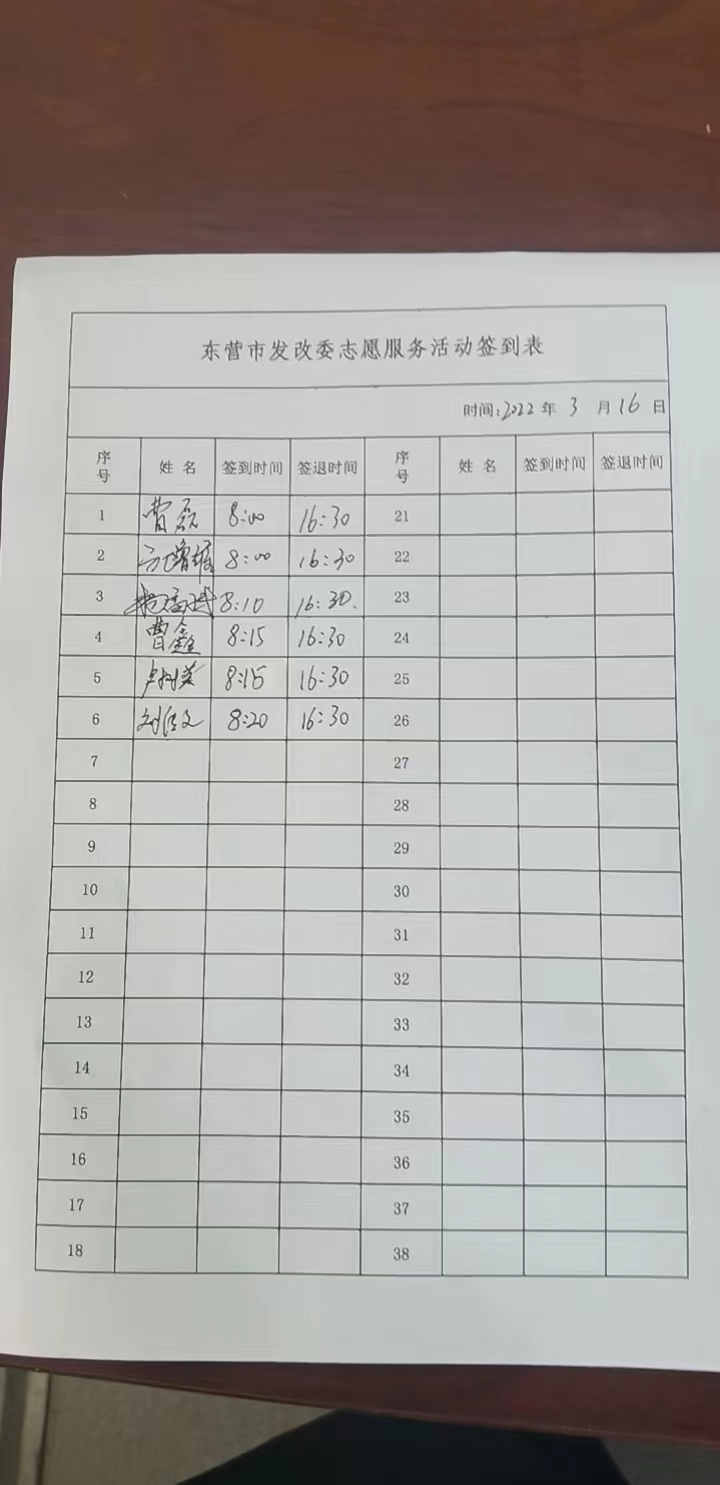 东营市发改委志愿服务活动签到表
时间:2022年 3 月16日
序号 姓 名 签到时间 签退时间 序号 姓 名 签到时间 签退时间
1 曹磊 8:00 16:30 21
2 8:00 16:30 22
3 8:10 16:30. 23
4 曹鑫 8:15 16:30 24
5 8:15 16:30 25
6 8:20 16:30 26
7 27
8 28
9 29
10 30
11 31
12 32
13 33
14 34
15 35
16 36
17 37
18 38